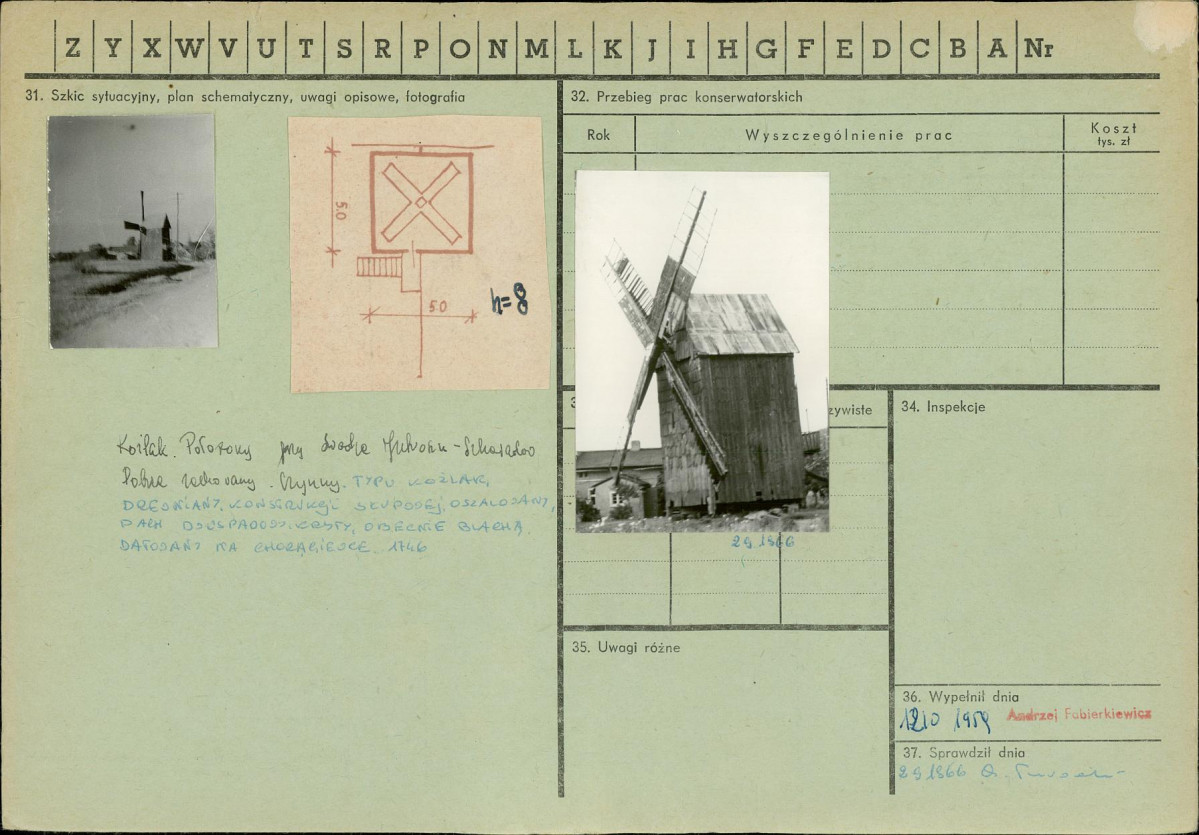 Z Y X W V U T S R P O N M L K J I H G F E D C B A Nr
31. Szkic sytuacyjny, plan schematyczny, uwagi opisowe, fotografia
5.0
5.0
h=8
Koźlak. Położony przy
Dobrze zachowany. Czynny. TYPU KOŹLAK,
DREWNIANY, KONSTRUKCJI SŁUPOWEJ, OSZALOWANY,
DACH DWUSPADOWY, OBECNIE BLACHĄ.
DATOWANY NA CHORĄGIEWCE 1746
32. Przebieg prac konserwatorskich
Rok
Wyszczególnienie prac
Koszt
tys. zł
zywiste
2 9 1966
34. Inspekcje
35. Uwagi różne
36. Wypełnił dnia
1210 1959 Andrzej Fabierkiewicz
37. Sprawdził dnia
2 9 1966